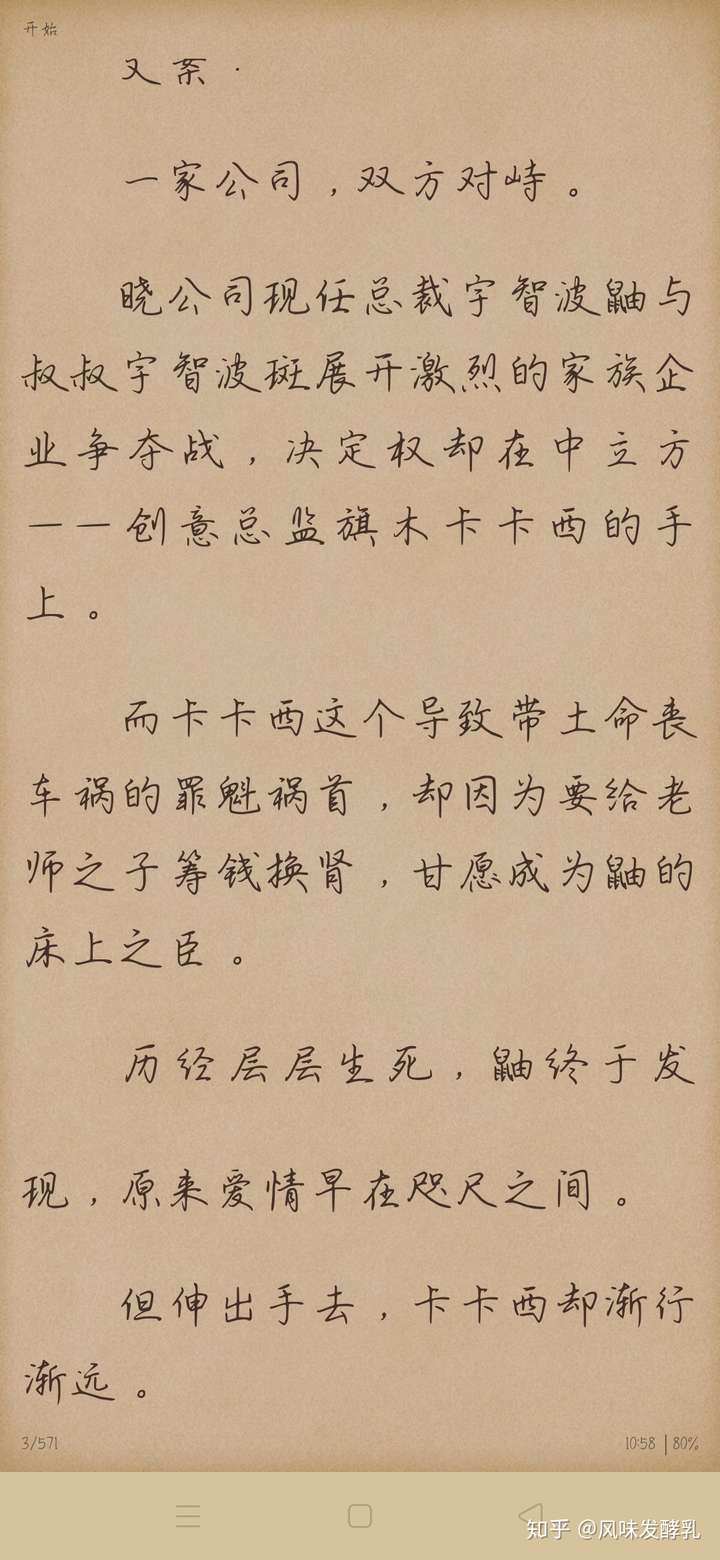 开始
文案·
一家公司，双方对峙。
晓公司现任总裁宇智波鼬与
叔叔宇智波斑展开激烈的家族企
业争夺战，决定权却在中立方
——创意总监旗木卡卡西的手
上。
而卡卡西这个导致带土命丧
车祸的罪魁祸首，却因为要给老
师之子筹钱换肾，甘愿成为鼬的
床上之臣。
历经层层生死，鼬终于发
现，原来爱情早在咫尺之间。
但伸出手去，卡卡西却渐行
渐远。
3/571
10:58 | 80%
知乎 @风味发酵乳